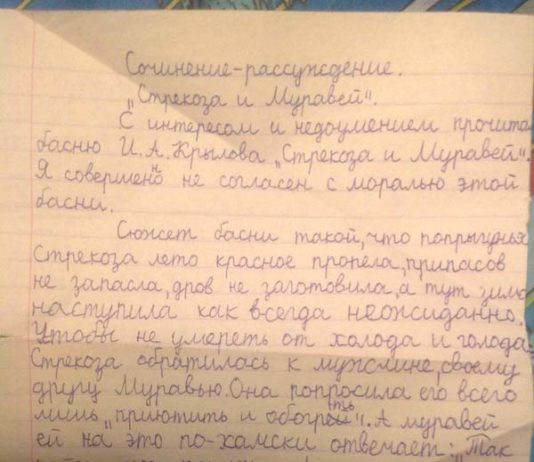 Сочинение-рассуждение.
„Стрекоза и Муравей".
С интересом и недоумением прочита
басню И.А.Крылова „Стрекоза и Муравей".
Я совершенно не согласен с моралью этой
басни.
Сюжет басни такой, что попрыгунья
Стрекоза лето красное пропела, припасов
не запасла, дров не заготовила, а тут зима
наступила как всегда неожиданно.
Чтобы не умереть от холода и голода
Стрекоза обратилась к мужчине, своему
другу Муравью. Она попросила его всего
лишь „приютить и обогреть". А муравей
ей на это по-хамски отвечает: „Так